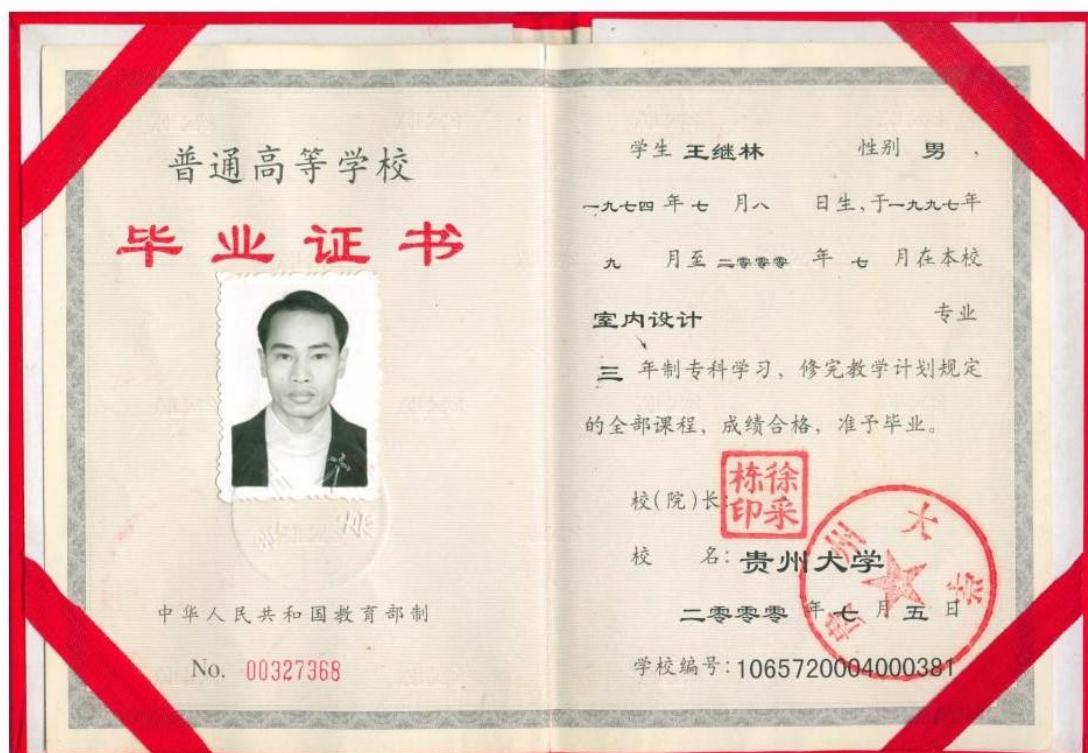 普通高等学校
毕业证书
中华人民共和国教育部制
No. 00327368
学生 王继林 性别 男，
一九七四年七月八日生，于一九九七年
九月至二零零零年七月在本校
室内设计 专业
三年制专科学习，修完教学计划规定
的全部课程，成绩合格，准予毕业。
校(院)长：
徐采栋印
校 名：贵州大学
贵州大学
二零零零年七月五日
学校编号：1065720004000381